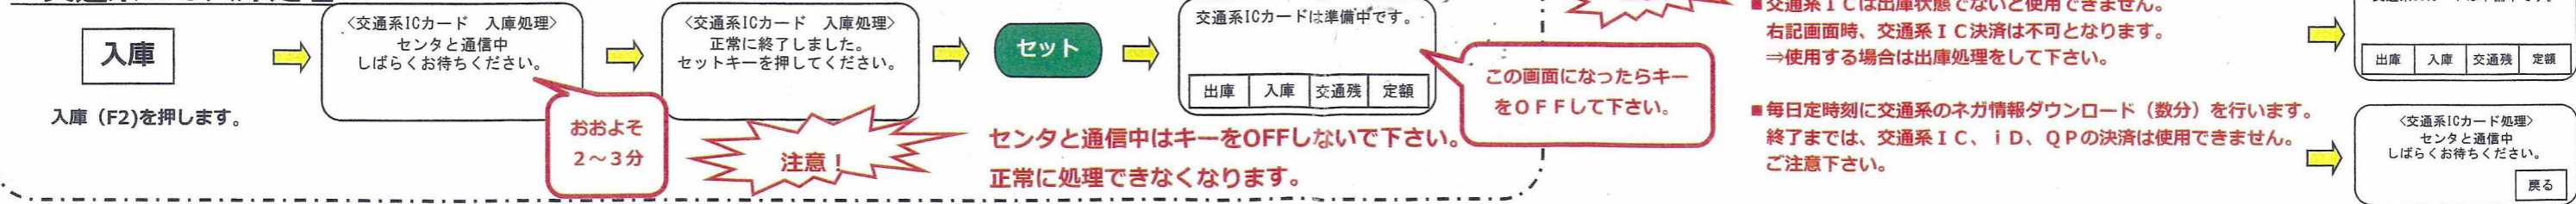 入庫
入庫（F2)を押します。
<交通系ICカード　入庫処理>
センタと通信中
しばらくお待ちください。
おおよそ
２～３分
<交通系ICカード　入庫処理>
正常に終了しました。
セットキーを押してください。
注意！
セット
交通系ICカードは準備中です。
出庫　入庫　交通残　定額
この画面になったらキー
をＯＦＦして下さい。
センタと通信中はキーをOFFしないで下さい。
正常に処理できなくなります。
■交通系ＩＣは出庫状態でないと使用できません。
右記画面時、交通系ＩＣ決済は不可となります。
⇒使用する場合は出庫処理をして下さい。
出庫　入庫　交通残　定額
■毎日定時刻に交通系のネガ情報ダウンロード（数分）を行います。
終了までは、交通系ＩＣ、ｉＤ、ＱＰの決済は使用できません。
ご注意下さい。
<交通系ICカード処理>
センタと通信中
しばらくお待ちください。
戻る